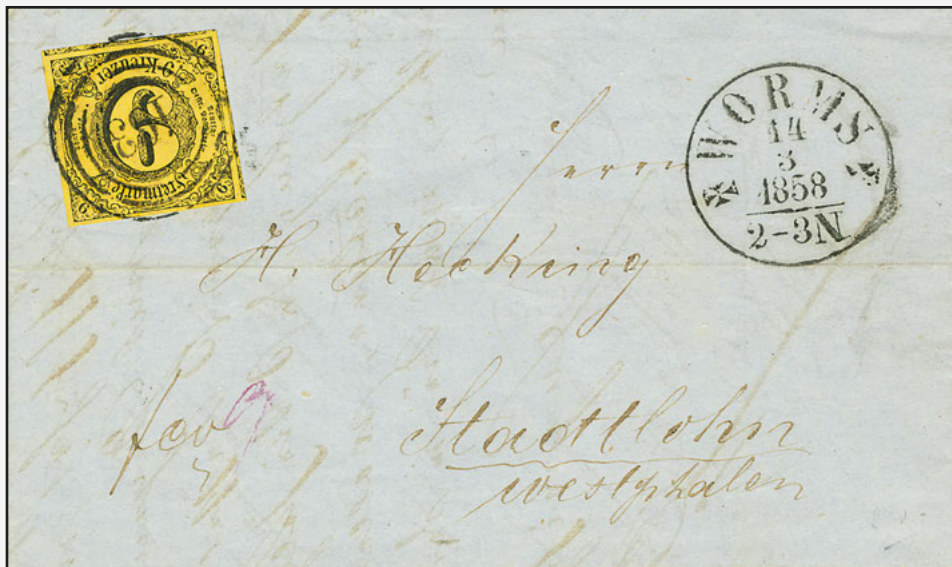 9 Kreuzer
Freimarke
9
9
9
9
WORMS
14
3
1858
2-3N
Herrn
H. Hecking
Stadtlohn
Westphalen
9